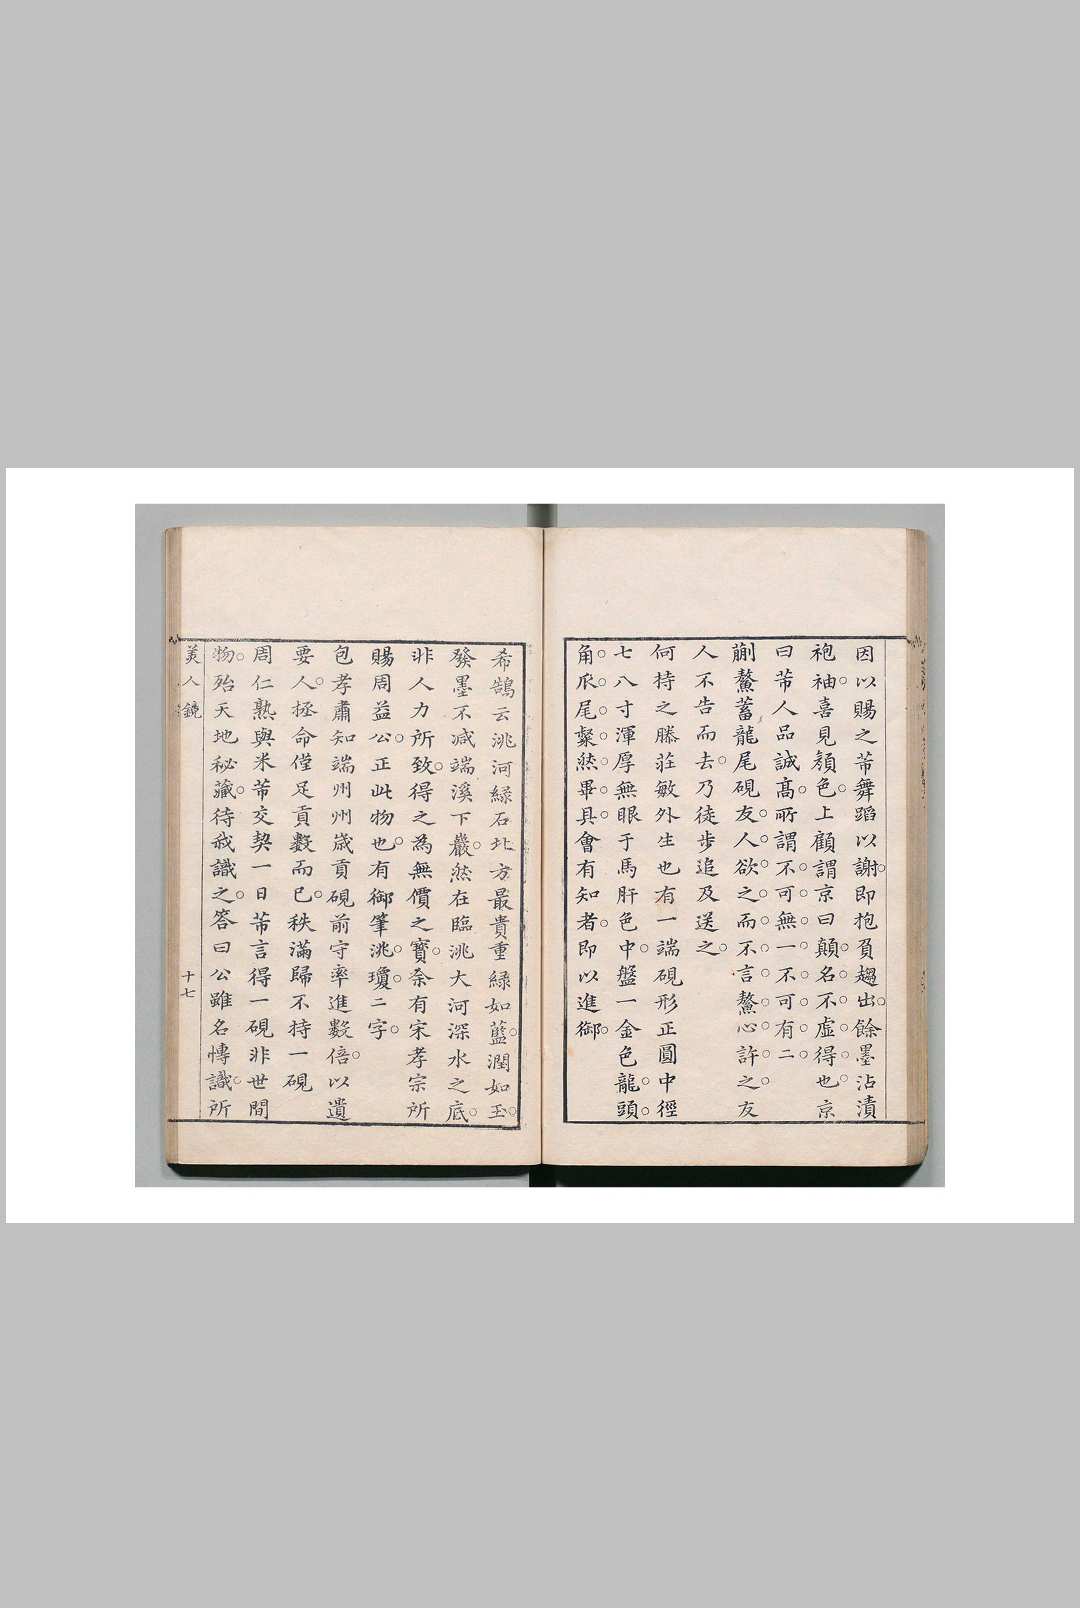 因以賜之芾舞蹈以謝即抱負趨出餘墨沾漬
袍袖喜見顏色上顧謂京曰顛名不虛得也京
曰芾人品誠髙所謂不可無一不可有二
蒯鰲蓄龍尾硯友人欲之而不言鰲心許之友
人不告而去乃徒步追及送之
何持之滕莊敏外生也有一端硯形正圓中徑
七八寸渾厚無眼于馬肝色中盤一金色龍頭
角爪尾粲然畢具會有知者即以進御
希鵠云洮河綠石北方最貴重綠如藍潤如玉
發墨不减端溪下巖然在臨洮大河深水之底
非人力所致得之為無價之寶奈有宋孝宗所
賜周益公正此物也有御筆洮瓊二字
包孝肅知端州州歲貢硯前守率進數倍以遺
要人拯命僅足貢數而已秩滿歸不持一硯
周仁熟與米芾交契一日芾言得一硯非世間
物殆天地秘藏待我識之答曰公雖名慱識所
美人鏡
十七